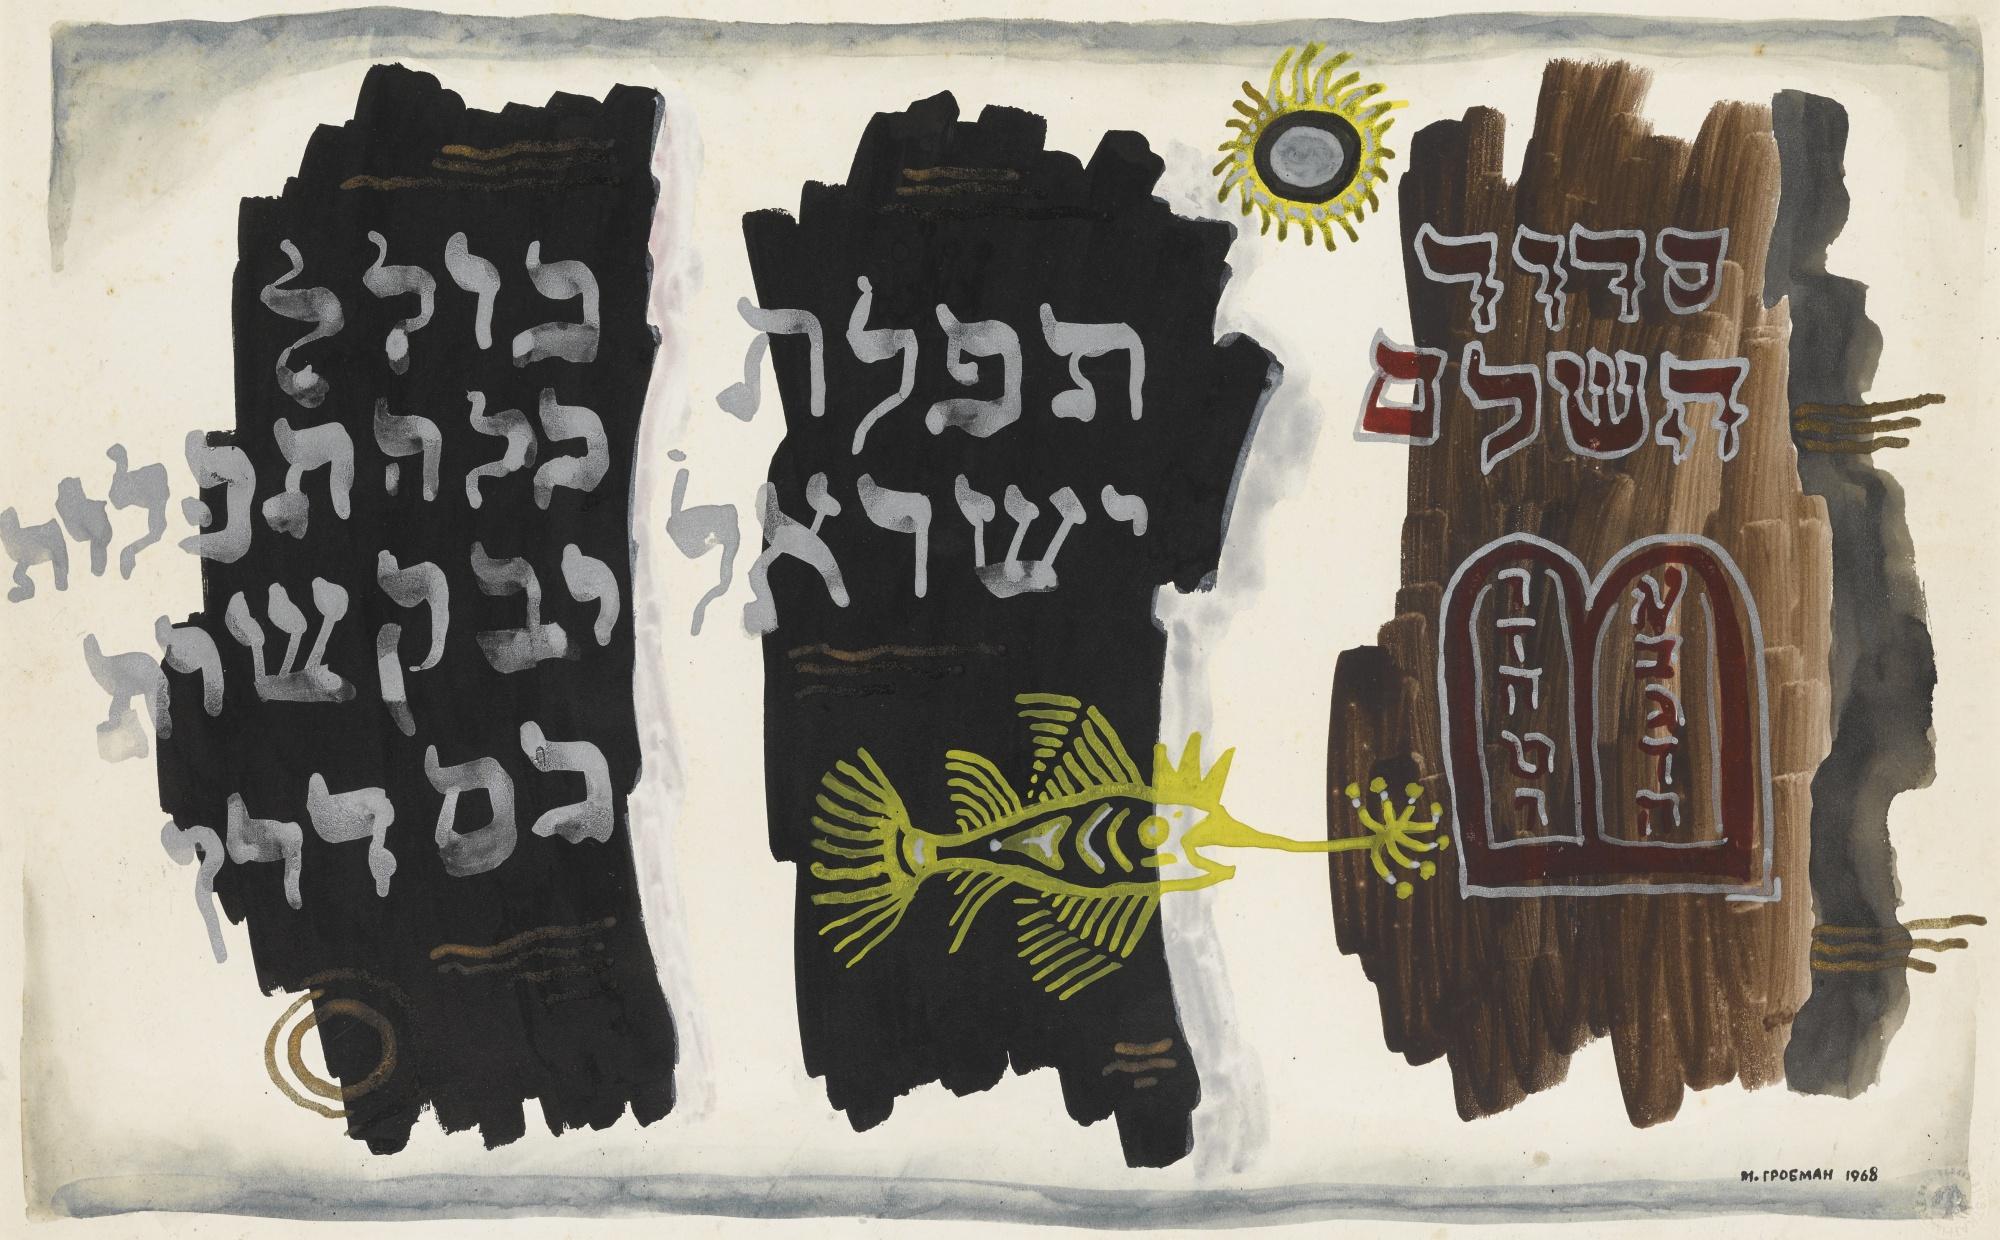 סדור
השלם
א ב ג ד ה
ו ז ח ט י
תפלת
ישראל
כולל
כל התפלות
ובקשות
כסדרן
М. ГРОБМАН 1968